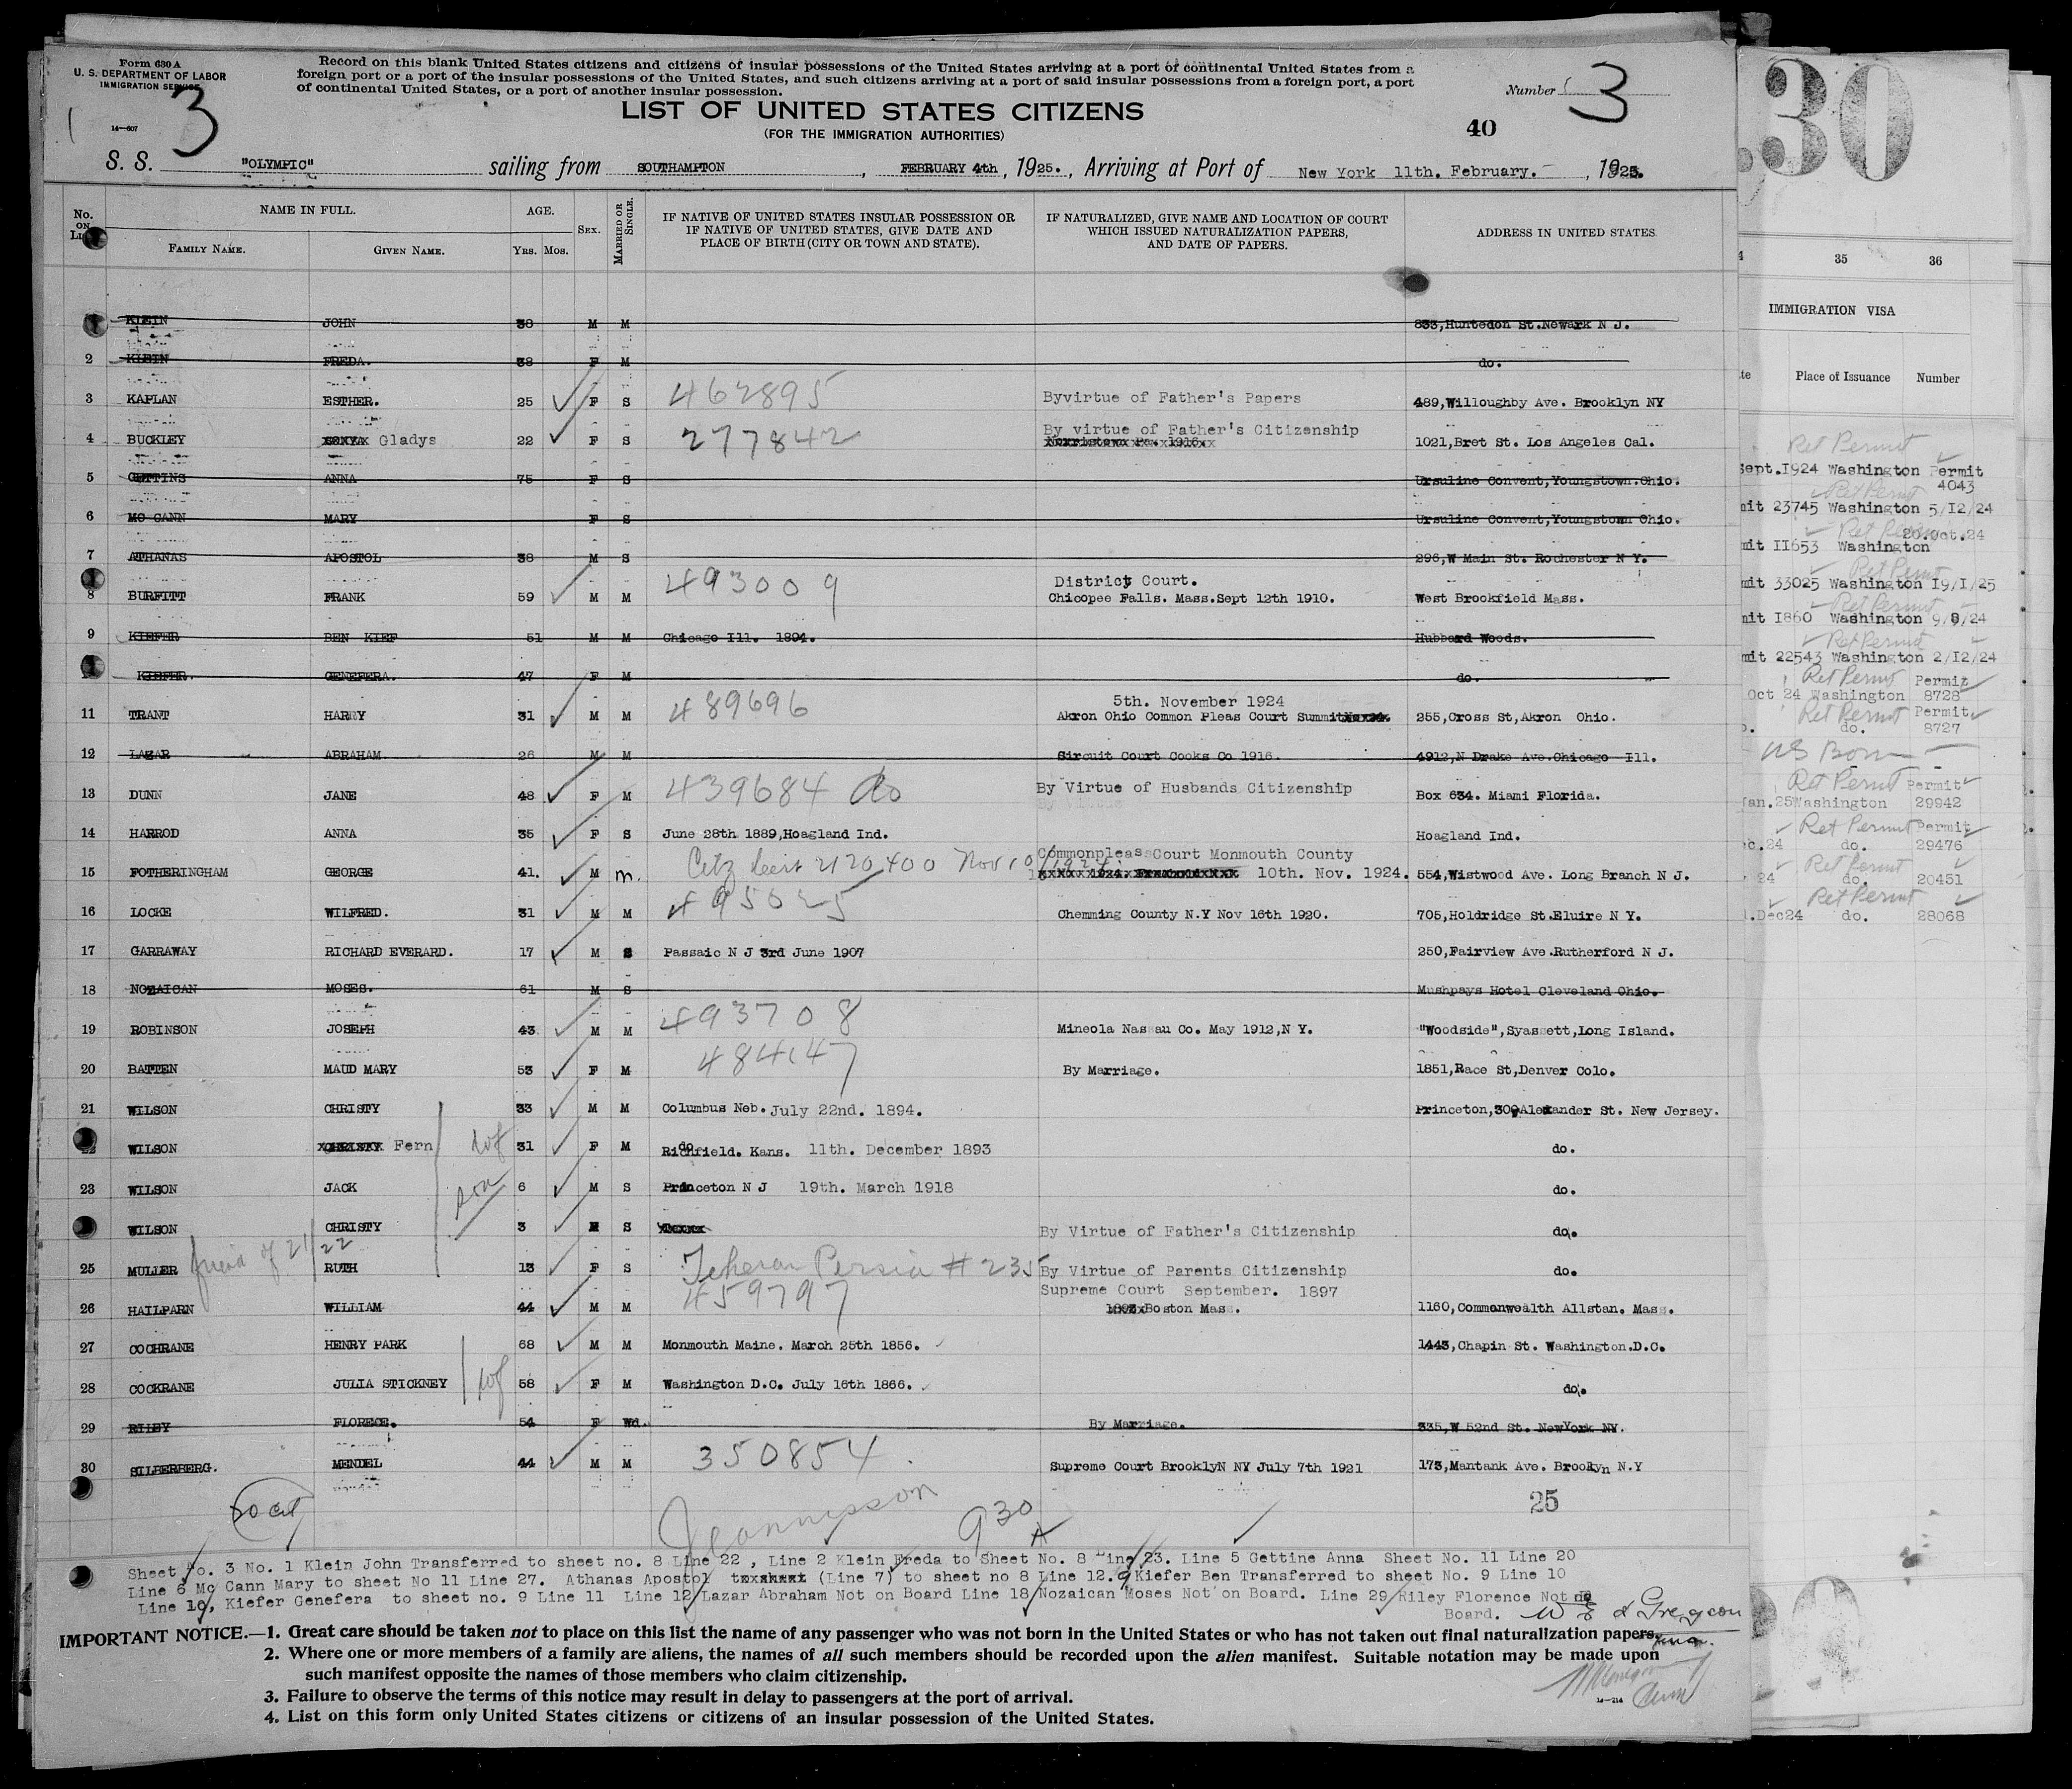 Form 630 A
U. S. DEPARTMENT OF LABOR
IMMIGRATION SERVICE
14—607
3
Record on this blank United States citizens and citizens of insular possessions of the United States arriving at a port of continental United States from a
foreign port or a port of the insular possessions of the United States, and such citizens arriving at a port of said insular possessions from a foreign port, a port
of continental United States, or a port of another insular possession.
Number 3
LIST OF UNITED STATES CITIZENS
(FOR THE IMMIGRATION AUTHORITIES)
40
S. S. "OLYMPIC" sailing from SOUTHAMPTON, FEBRUARY 4th, 1925., Arriving at Port of New York 11th. February. , 1925.
No. ON LIST
NAME IN FULL.
FAMILY NAME.
GIVEN NAME.
AGE.
YRS. MOS.
SEX.
MARRIED OR SINGLE.
IF NATIVE OF UNITED STATES INSULAR POSSESSION OR
IF NATIVE OF UNITED STATES, GIVE DATE AND
PLACE OF BIRTH (CITY OR TOWN AND STATE).
IF NATURALIZED, GIVE NAME AND LOCATION OF COURT
WHICH ISSUED NATURALIZATION PAPERS,
AND DATE OF PAPERS.
ADDRESS IN UNITED STATES
KLEIN JOHN 38 M M 833,Huntedon St.Newark N J.
2 KLEIN FREDA. 38 F M do.
3 KAPLAN ESTHER. 25 F S 462895 Byvirtue of Father's Papers 489,Willoughby Ave. Brooklyn NY
By virtue of Father's Citizenship
4 BUCKLEY Gladys 22 F S 277842 Norristown Pa. 1916. 1021,Bret St. Los Angeles Cal.
5 GETTINS ANNA 75 F S Ursuline Convent,Youngstown.Ohio.
6 MC CANN MARY F S Ursuline Convent,Youngstown Ohio.
7 ATHANAS APOSTOL 38 M S 296,W Main St. Rochester N Y.
District Court.
8 BURFITT FRANK 59 M M 493009 Chicopee Falls. Mass.Sept 12th 1910. West Brookfield Mass.
9 KIEFER BEN KIEF 51 M M Chicago Ill. 1894. Hubbard Woods.
KIEFER. GENEFERA. 47 F M do.
5th. November 1924
11 TRANT HARRY 31 M M 489696 Akron Ohio Common Pleas Court Summit 255,Cross St,Akron Ohio.
12 LAZAR ABRAHAM. 26 M M Sircuit Court Cooks Co 1916. 4912,N Drake Ave.Chicago Ill.
13 DUNN JANE 48 F M 439684 do By Virtue of Husbands Citizenship Box 634. Miami Florida.
14 HARROD ANNA 35 F S June 28th 1889,Hoagland Ind. Hoagland Ind.
Commonpleas Court Monmouth County
15 FOTHERINGHAM GEORGE 41. M m. Citz Cert 2120400 Nov 10/1924. 10th. Nov. 1924. 554,Wistwood Ave. Long Branch N J.
16 LOCKE WILFRED. 31 M M 495025 Chemming County N.Y Nov 16th 1920. 705,Holdridge St.Eluire N Y.
17 GARRAWAY RICHARD EVERARD. 17 M S Passaic N J 3rd June 1907 250,Fairview Ave.Rutherford N J.
18 NOZAICAN MOSES. 61 M S Mushpays Hotel Cleveland Ohio.
19 ROBINSON JOSEPH 43 M M 493708 Mineola Nassau Co. May 1912,N Y. "Woodside",Syassett,Long Island.
20 BATTEN MAUD MARY 53 F M 484147 By Marriage. 1851,Race St,Denver Colo.
21 WILSON CHRISTY 33 M M Columbus Neb. July 22nd. 1894. Princeton,300,Alexander St. New Jersey.
22 WILSON CHRISTY Fern wf 31 F M Richfield. Kans. 11th. December 1893 do.
23 WILSON JACK son 6 M S Princeton N J 19th. March 1918 do.
WILSON CHRISTY 3 M S By Virtue of Father's Citizenship do.
friend of 21/22
25 MULLER RUTH 13 F S Teheran Persia # 235 By Virtue of Parents Citizenship do.
Supreme Court September. 1897
26 HAILPARN WILLIAM 44 M M 459797 Boston Mass. 1160,Commonwealth Allstan. Mass.
27 COCHRANE HENRY PARK 68 M M Monmouth Maine. March 25th 1856. 1443,Chapin St. Washington.D.C.
28 COCKRANE JULIA STICKNEY wf 58 F M Washington D.C. July 16th 1866. do.
29 RILEY FLORECE. 54 F Wd. By Marriage. 335,W 52nd St. NewYork NY.
30 SILBERBERG. MENDEL 44 M M 350854 Supreme Court BrooklyN NY July 7th 1921 173,Mantank Ave. Brooklyn N.Y
25
930
Sheet No. 3 No. 1 Klein John Transferred to sheet no. 8 Line 22 , Line 2 Klein Freda to Sheet No. 8 Line 23. Line 5 Gettine Anna Sheet No. 11 Line 20
Line 6 Mc Cann Mary to sheet No 11 Line 27. Athanas Apostol (Line 7) to sheet no 8 Line 12. 9 Kiefer Ben Transferred to sheet No. 9 Line 10
Line 10, Kiefer Genefera to sheet no. 9 Line 11 Line 12 Lazar Abraham Not on Board Line 18 Nozaican Moses Not on Board. Line 29 Riley Florence Not on
Board.
IMPORTANT NOTICE.—1. Great care should be taken not to place on this list the name of any passenger who was not born in the United States or who has not taken out final naturalization papers.
2. Where one or more members of a family are aliens, the names of all such members should be recorded upon the alien manifest. Suitable notation may be made upon
such manifest opposite the names of those members who claim citizenship.
3. Failure to observe the terms of this notice may result in delay to passengers at the port of arrival.
4. List on this form only United States citizens or citizens of an insular possession of the United States.
14—214
30
35 36
IMMIGRATION VISA
Place of Issuance Number
Ret Permit
Sept.1924 Washington Permit
4043
Ret Permit
mit 23745 Washington 5/12/24
Ret Permit
20.Oct.24
mit 11653 Washington
Ret Permit
mit 33025 Washington 19/1/25
Ret Permit
mit 1860 Washington 9/8/24
Ret Permit
mit 22543 Washington 2/12/24
Ret Permit Permit
Oct 24 Washington 8728
Ret Permit Permit
do. 8727
US Born
Ret Permit Permit
Jan.25 Washington 29942
Ret Permit Permit
ec.24 do. 29476
Ret Permit
24 do. 20451
Ret Permit
.Dec24 do. 28068